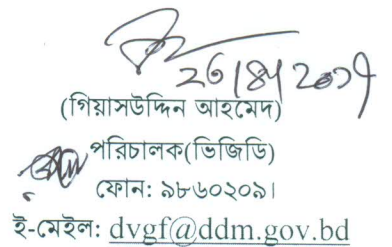 (গিয়াসউদ্দিন আহমেদ)
পরিচালক(ভিজিডি)
ফোন: ৯৮৬০২০৯।
ই-মেইল: dvgf@ddm.gov.bd